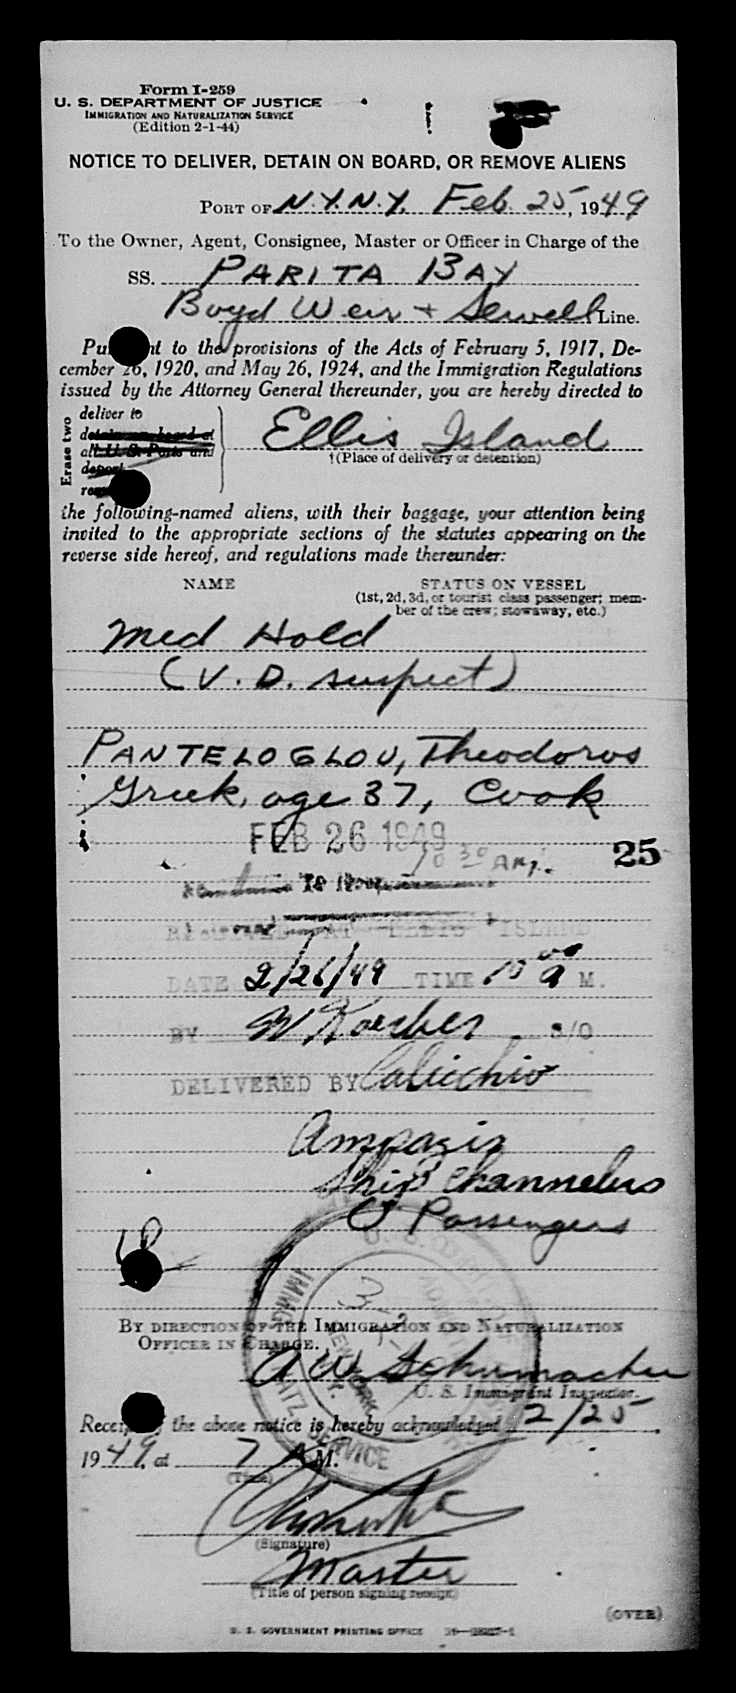 Form I-259
U. S. DEPARTMENT OF JUSTICE
IMMIGRATION AND NATURALIZATION SERVICE
(Edition 2-1-44)
NOTICE TO DELIVER, DETAIN ON BOARD, OR REMOVE ALIENS
PORT OF N.Y.N.Y. Feb. 25, 1949
To the Owner, Agent, Consignee, Master or Officer in Charge of the
SS. PARITA BAY
Boyd Weir + Sewell Line.
to the provisions of the Acts of February 5, 1917, De-
cember 26, 1920, and May 26, 1924, and the Immigration Regulations
issued by the Attorney General thereunder, you are hereby directed to
Erase two
deliver to
detain on board at
all U. S. Ports and
deport
Ellis Island
†(Place of delivery or detention)
the following-named aliens, with their baggage, your attention being
invited to the appropriate sections of the statutes appearing on the
reverse side hereof, and regulations made thereunder:
NAME STATUS ON VESSEL
(1st, 2d, 3d, or tourist class passenger; mem-
ber of the crew; stowaway, etc.)
Med Hold
(V. D. suspect)
PANTELOGLOU, Theodoros
Greek, age 37, Cook
FEB 26 1949
10 30 AM. 25
RECEIVED AT ELLIS ISLAND
DATE 2/26/49 TIME 10 00 A M.
BY W Koerber S/O
DELIVERED BY Calicchio
Ship Channelers
Passengers
BY DIRECTION OF THE IMMIGRATION AND NATURALIZATION
OFFICER IN CHARGE.
A W Schumacher
U. S. Immigrant Inspector.
Receipt of the above notice is hereby acknowledged 2/25
1949, at 7 A M.
(Time)
(Signature)
Master
(Title of person signing receipt)
(OVER)
U. S. GOVERNMENT PRINTING OFFICE